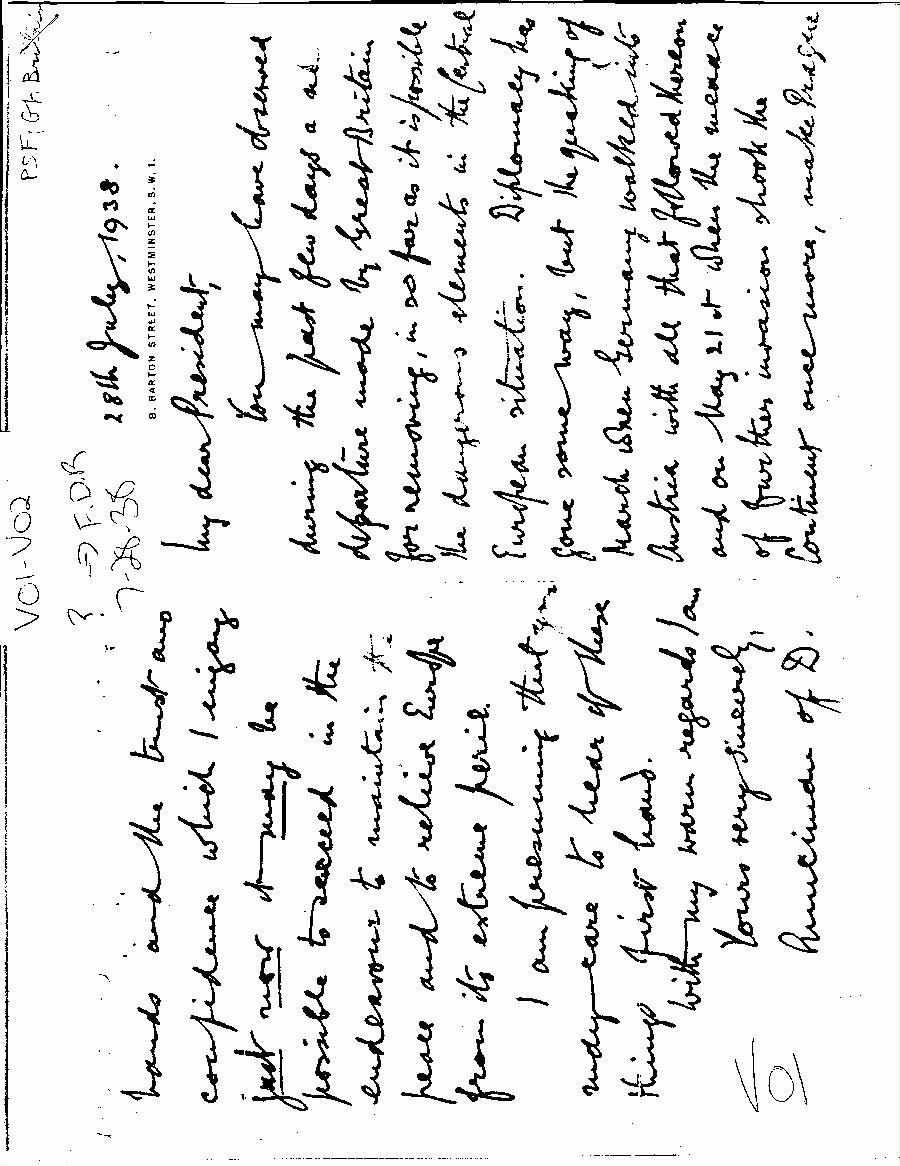 PSF: Gt. Britain
VO1-VO2
? → F.D.R
7-28-38
28th July, 1938.
8, BARTON STREET, WESTMINSTER, S.W.1.
My dear President,
You may have observed
during the past few days a
departure made by Great Britain
for removing, in so far as it is possible
the dangerous elements in the Central
European situation. Diplomacy has
gone some way, but the quaking of
March when Germany walked into
Austria with all that followed thereon
and on May 21st when the menace
of further invasion shook the
Continent once more, make Prague
hands and the trust and
confidence which I enjoy
just now it may be
possible to succeed in the
endeavour to maintain
peace and to relieve Europe
from its extreme peril.
I am presuming that you
may care to hear of these
things first hand.
With my warm regards I am
Yours very sincerely,
Runciman of D.
VO1